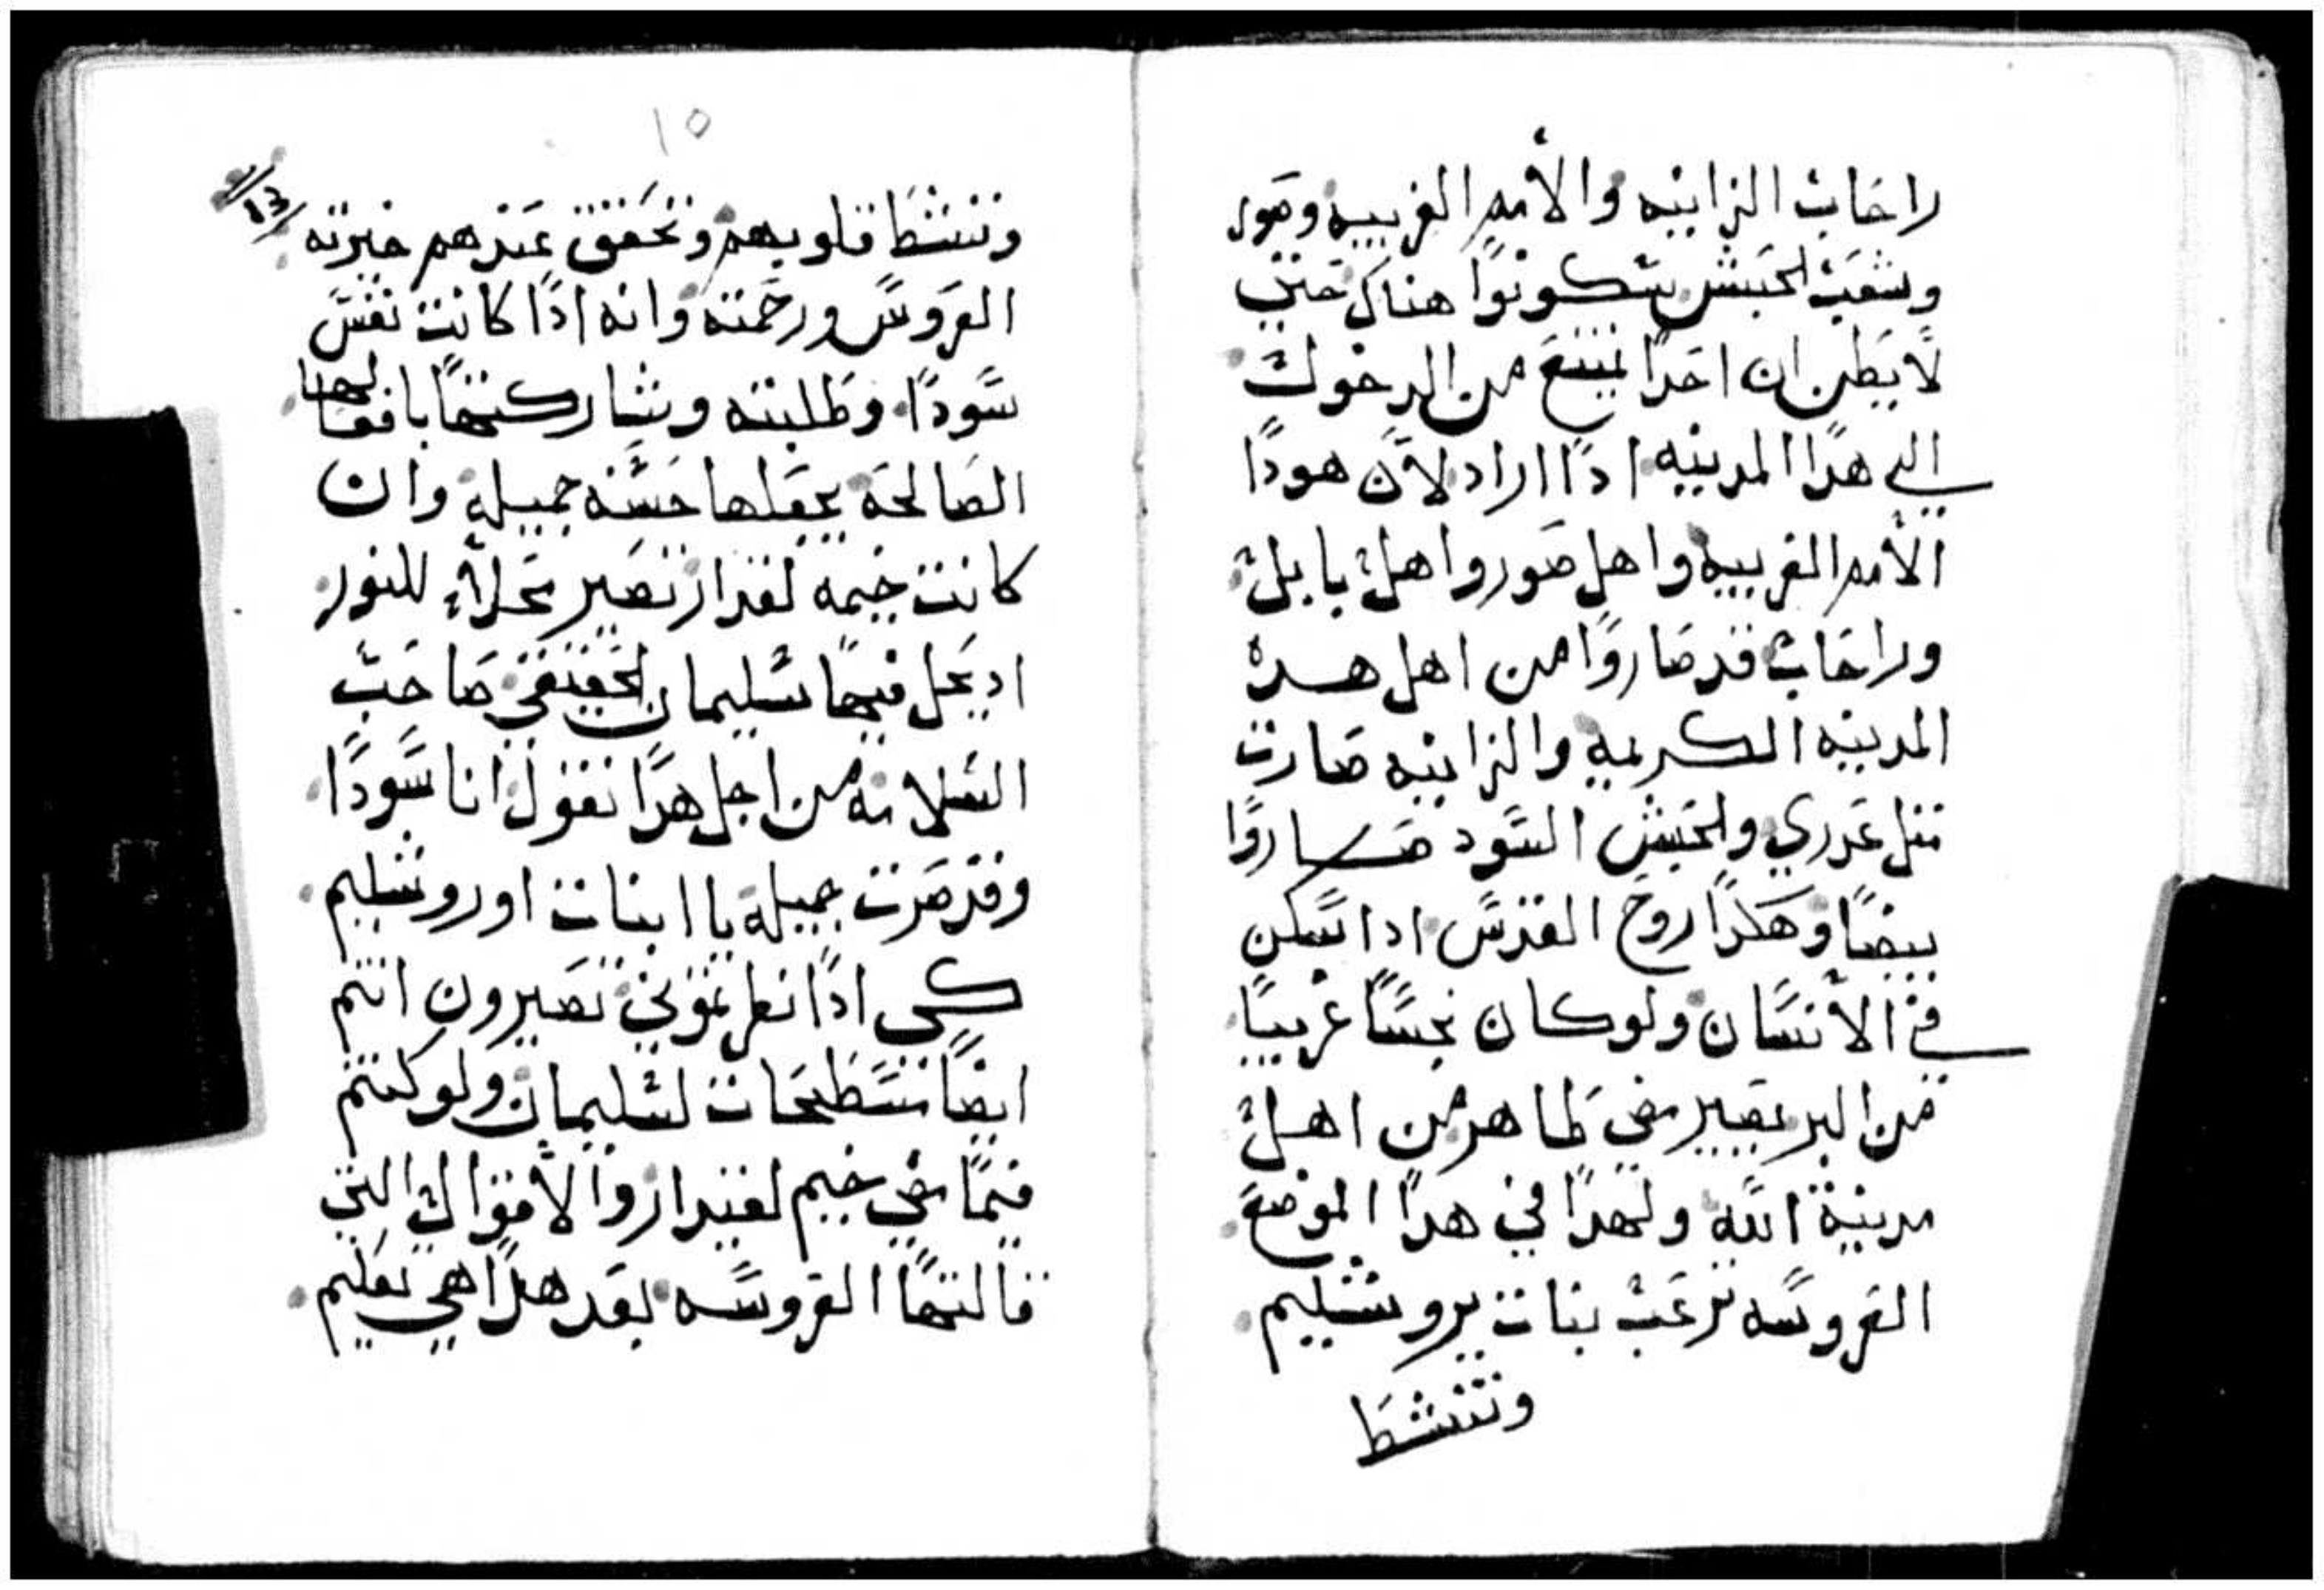 راحاب الزانيه والأمم الغريبيه وصور
وشعب الحبش يتكونوا هناك حتي
لا يظن ان احدًا يمتنع من الدخول
الي هدا المدينه ادا اراد لان هودا
الأمم الغريبيه واهل صور واهل بابل
وراحاب قد صاروا من اهل هده
المدينه الكريمه والزانيه صارت
مثل عدري والحبش السود صاروا
بيضًا وهكدا روح القدس ادا سكن
في الأنسان ولو كان نجسًا غريبًا
من البر يصير نقي طاهر من اهل
مدينة الله ولهدا في هدا الموضع
العروسه ترغب بنات يروشليم
وتنشط
١٥
13
وتنشط قلوبهم وتحقق عندهم خيرته
العروس ورحمته وانه ادا كانت نفس
سودا وطلبته وتشاركتها بافعالها
الصالحه يجعلها حسنه جميله وان
كانت خيمه لقيدار تصير محلاً للنور
اد يحل فيها سليمان الحقيقي صاحب
السلامه من اجل هدا تقول انا سودا
وقد صرت جميله يا ابنات اوروشليم
كي ادا نظرتموني تصيرون انتم
ايضًا تسطحات لسليمان ولو كنتم
فيما مضي خيم لقيدار والأقوال التي
قالتها العروسه بعد هدا هي تعليم